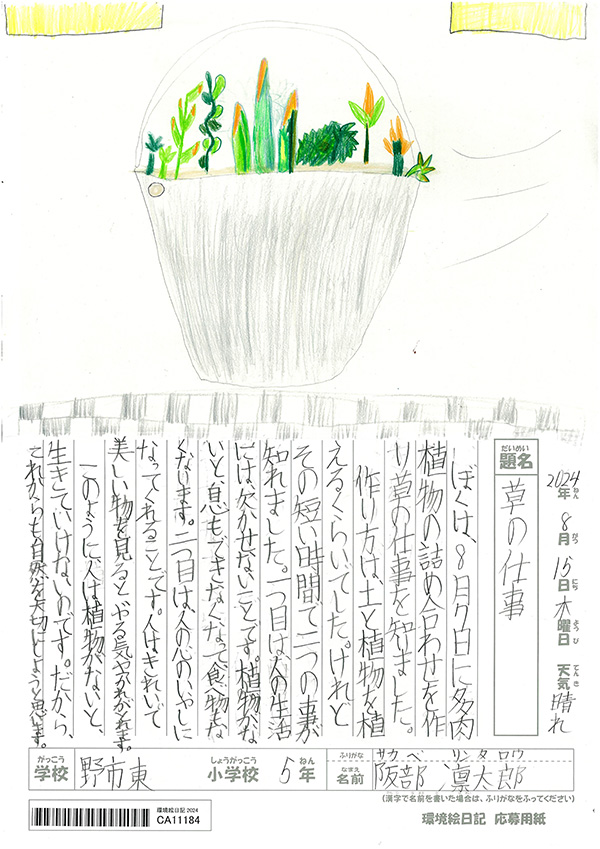 2024年ねん 8月がつ 15日にち 木曜日ようび 天気てんき 晴れ
だいめい
題名
草の仕事
ぼくは、8月7日に多肉
植物の詰め合わせを作
り草の仕事を知りました。
作り方は、土と植物を植
えるくらいでした。けれど
その短い時間で二つの事が
知れました。一つ目は人の生活
には欠かせないことです。植物がな
いと、息もできなくなって食べ物もな
くなります。二つ目は人の心のいやしに
なってくれることです。人はきれいで
美しい物を見るとやる気や
このように、人は植物がないと、
生きていけないのです。だから、
これからも自然を大切にしようと思います。
がっこう
学校
野市東
しょうがっこう
小学校
5
ねん
年
ふりがな
サカベ リンタロウ
なまえ
名前
阪部 凛太郎
(漢字で名前を書いた場合は、ふりがなをふってください)
環境絵日記 2024
CA11184
環境絵日記 応募用紙